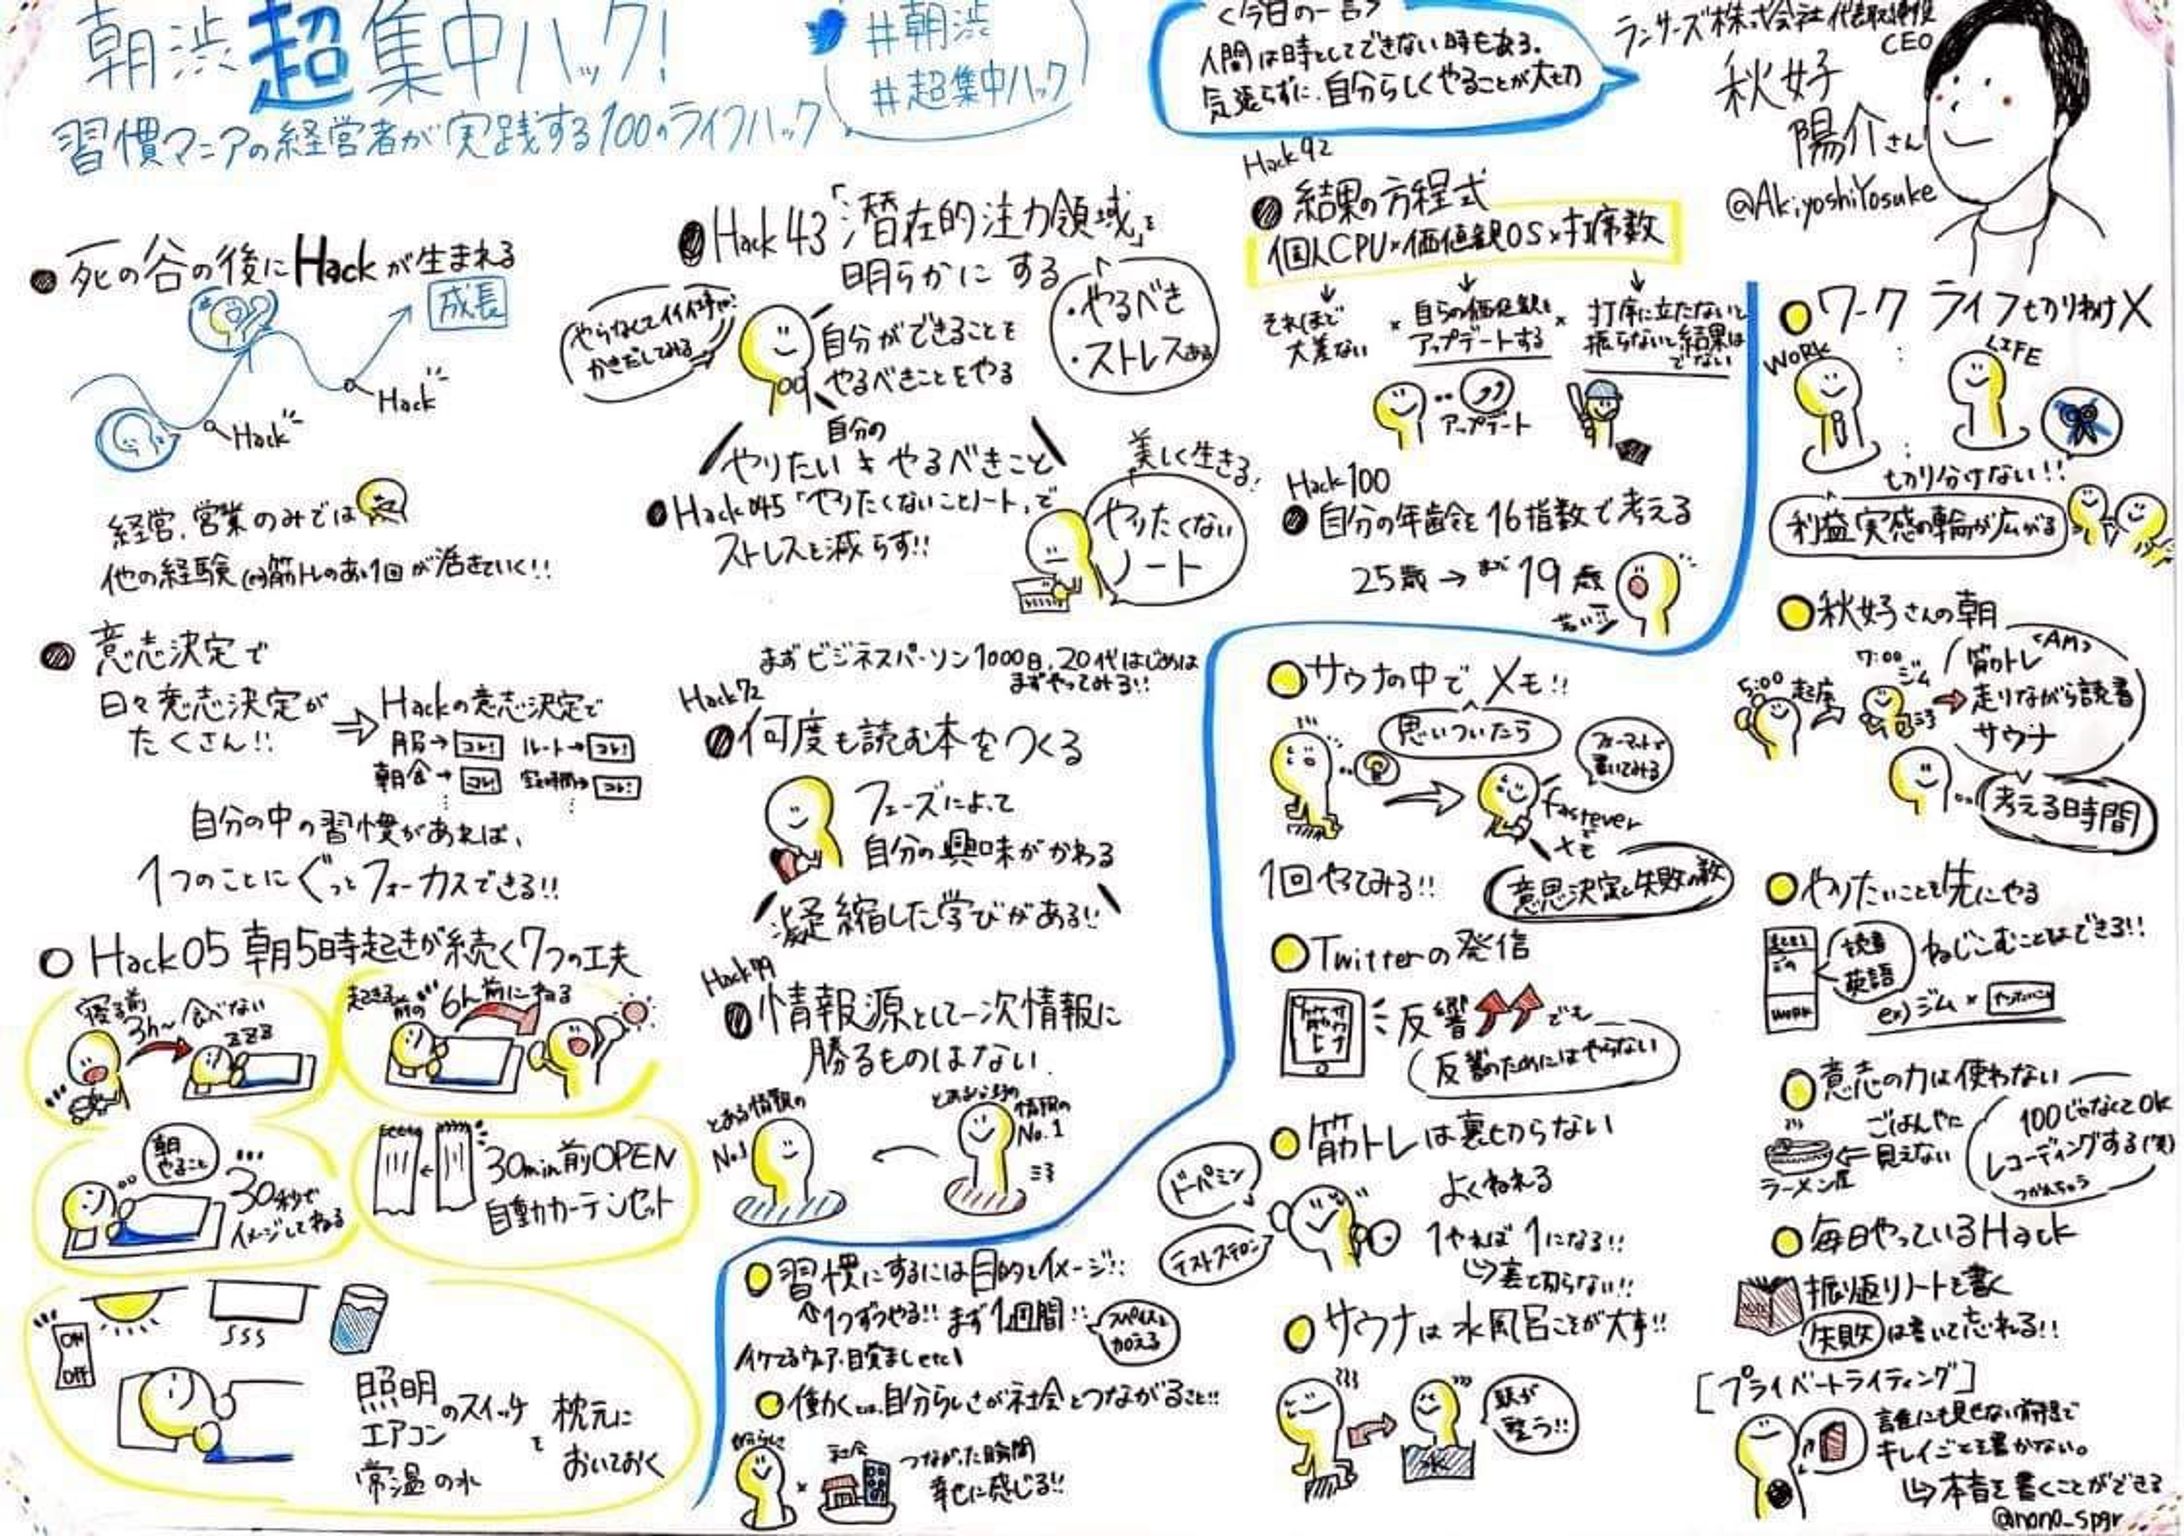 朝渋 超集中ハック!
習慣マニアの経営者が実践する100のライフハック
#朝渋
#超集中ハック
<今日の一言>
人間は時としてできない時もある。
気張らずに、自分らしくやることが大切
ランサーズ株式会社 代表取締役
CEO
秋好
陽介さん
@AkiyoshiYosuke
死の谷の後にHackが生まれる
成長
Hack
Hack
経営、営業のみでは
他の経験(ex)筋トレのあと1回が活きていく!!
意志決定で
日々意志決定が
たくさん!!
Hackの意志決定で
服→コレ! ルート→コレ!
朝食→コレ!
自分の中の習慣があれば、
1つのことにぐっとフォーカスできる!!
Hack05 朝5時起きが続く7つの工夫
寝る前
3h~食べない
ZZZ
起きる前の6h前にねる
朝
やること
30秒で
イメージしてねる
30min前OPEN
自動カーテンセット
ON
OFF
照明
エアコン
のスイッチ
常温の水
を
枕元に
おいておく
Hack43「潜在的注力領域」を
明らかにする
やらなくてイイ事は?
かきだしてみる
自分ができることを
やるべきことをやる
・やるべき
・ストレスある
自分の
やりたい≠やるべきこと
Hack045「やりたくないことノート」で
ストレスを減らす!!
美しく生きる!
やりたくない
ノート
まずビジネスパーソン1000日、20代はじめは
まずやってみる!!
Hack72
何度も読む本をつくる
フェーズによって
自分の興味がかわる
凝縮した学びがある!!
Hack99
情報源として一次情報に
勝るものはない
とある情報の
No.1
情報の
No.1
Hack92
結果の方程式
個人CPU×価値観OS×打席数
それほど
大差ない
×
自らの価値観を
アップデートする
×
打席に立たないと
振らないと結果は
でない
アップデート
Hack100
自分の年齢を16指数で考える
25歳→まだ19歳
若い!!
習慣にするには目的とイメージ!!
1つずつやる!! まず1週間!!
スパイスを
加える
イケてるウェア・目覚ましetc
働くとは、自分らしさが社会とつながること!!
自分らしさ
×
社会
つながった瞬間
幸せに感じる!!
サウナの中でメモ!!
思いついたら
フォーマットで
書いてみる
fastever
で
メモ
1回やってみる!!
意思決定と失敗の数
Twitterの発信
反響
でも
反響のためにはやらない
筋トレは裏切らない
ドーパミン
テストステロン
よくねれる
1やれば1になる!!
裏切らない!!
サウナは水風呂こそが大事!!
水
頭が
整う!!
ワークライフ切りわけ×
WORK
LIFE
切り分けない!!
利益、実感の輪が広がる
秋好さんの朝
<AM>
5:00
起床
7:00
ジム
筋トレ
走りながら読書
サウナ
考える時間
やりたいことを先にやる
WORK
読書
英語
ねじこむことはできる!!
ex)ジム×
意志の力は使わない
ごはんやに
見えない
ラーメン屋
100じゃなくてOK
レコーディングする(笑)
つかれちゃう
毎日やっているHack
NOTE
振り返りノートを書く
失敗は書いて忘れる!!
[プライベートライティング]
誰にも見せない前提で
キレイごとを書かない。
本音を書くことができる
@nono_spgr